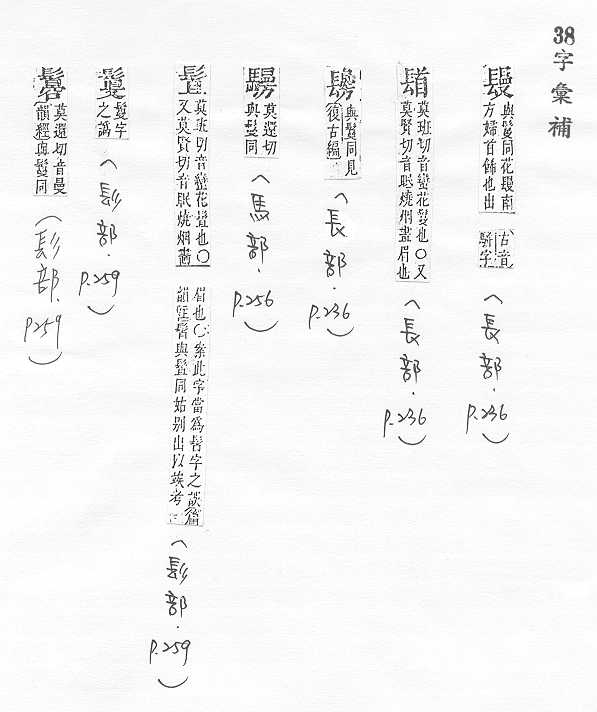 38字彙補
與鬘同花鬘南
方婦首飾也出
古音
駢字
(長部.P.236)
莫班切音蠻花鬘也○又
莫賢切音眠燒烟畫眉也
(長部.P.236)
與鬘同見
復古編
(長部.P.236)
莫還切
與鬘同
(馬部.P.256)
莫班切音蠻花鬘也○
又莫賢切音眠燒烟畫
眉也○案此字當為字之
韻經與鬘同姑別出以竢考
(髟部.P.259)
鬘字
之譌
(髟部.P.259)
莫還切音曼
韻經與鬘同
(髟部.P259)